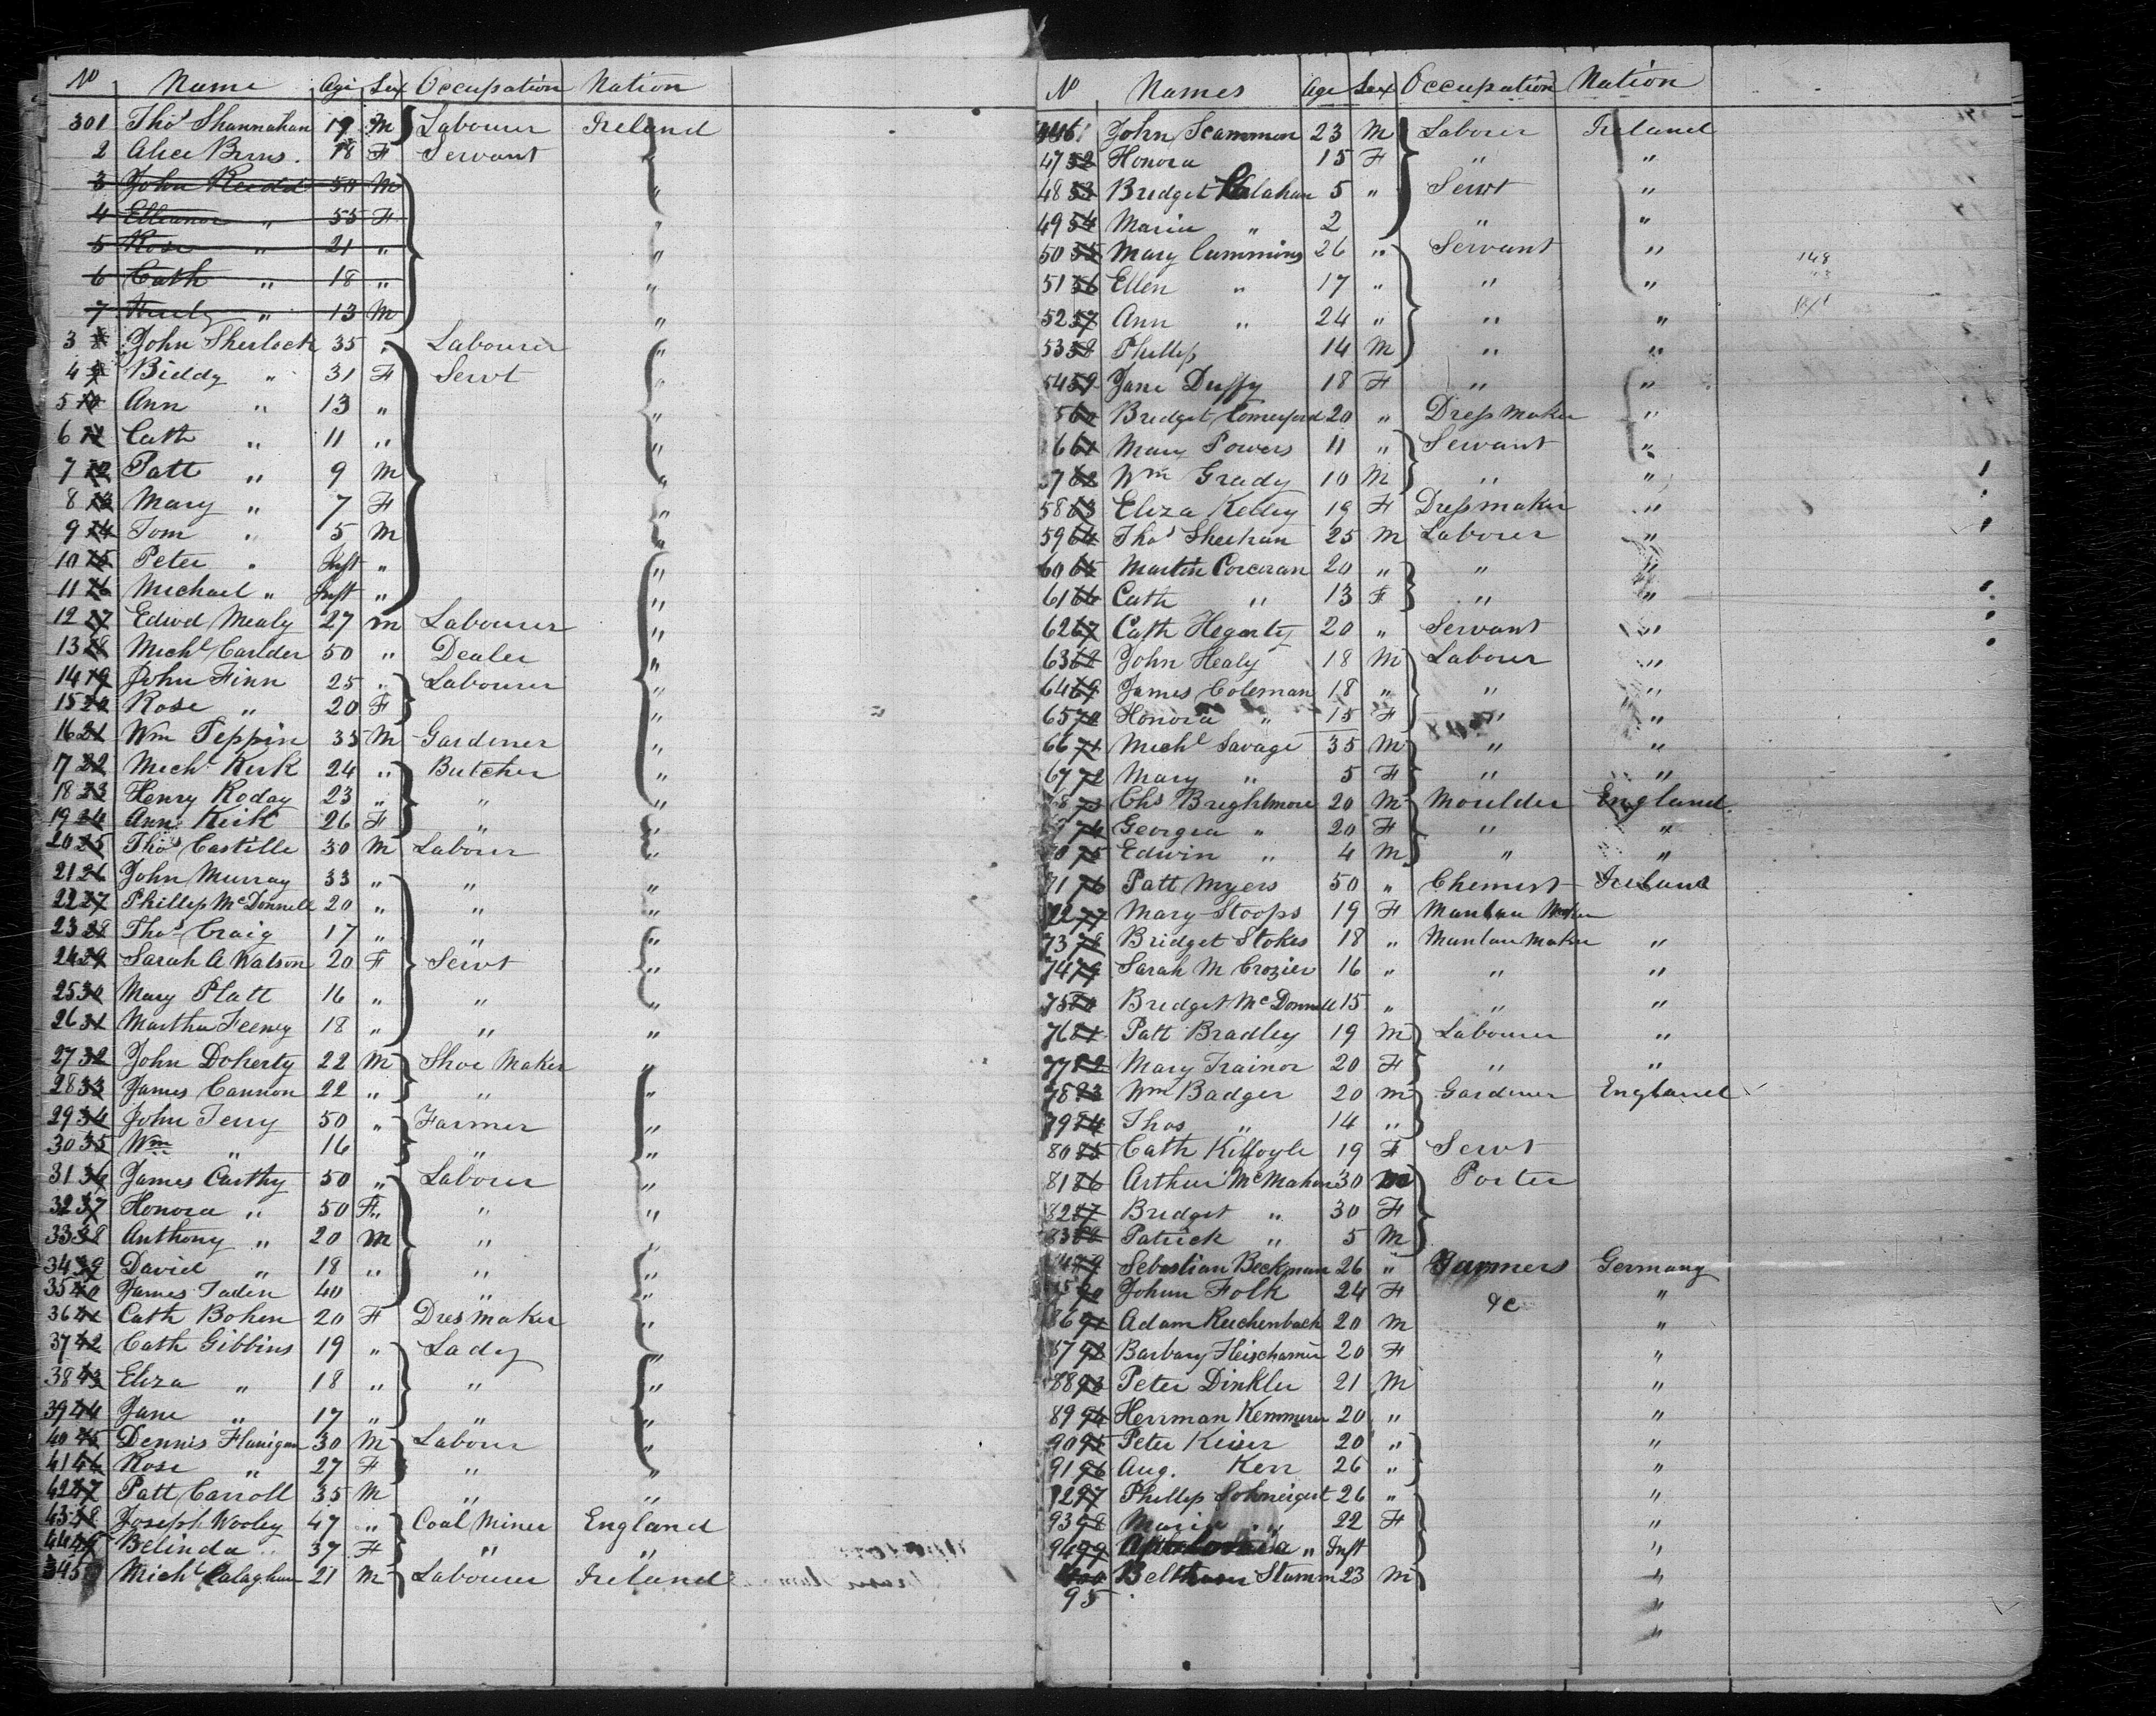 No Name Age Sex Occupation Nation
301 Thos Shannahan 19 M Labourer Ireland
2 Alice Burns. 18 F Servant
3 John Reedd 50 M "
4 Elleanor " 55 F "
5 Rose " 21 " "
6 Cath " 18 " "
7 " 13 M "
3 8 John Sherlock 35 " Labourer "
4 9 Biddy " 31 F Servt "
5 10 Ann " 13 " "
6 11 Cath " 11 " "
7 12 Patt " 9 M "
8 13 Mary " 7 F "
9 14 Tom " 5 M "
10 15 Peter " Inft " "
11 16 Michael " Inft " "
12 17 Edwd Mealy 27 m Labourer "
13 18 Michl Carlder 50 " Dealer "
14 19 John Finn 25 " Labourer "
15 20 Rose " 20 F "
16 21 Wm Teppin 35 M Gardener "
17 22 Michl Kirk 24 " Butcher "
18 23 Henry Roday 23 " " "
19 24 Ann Keik 26 F " "
20 25 Thos Castille 30 M Labourer "
21 26 John Murray 33 " " "
22 27 Phillip McDonnell 20 " " "
23 28 Thos Craig 17 " " "
24 29 Sarah A Watson 20 F Servt "
25 30 Mary Platt 16 " " "
26 31 Martha Feeney 18 " " "
27 32 John Doherty 22 M Shoe Maker "
28 33 James Cannon 22 " " "
29 34 John Terry 50 " Farmer "
30 35 Wm " 16 " "
31 36 James Carthy 50 " Labourer "
32 37 Honora " 50 F " "
33 38 Anthony " 20 M " "
34 39 David " 18 " " "
35 40 James Taden 40 " "
36 41 Cath Bohen 20 F Dres maker "
37 42 Cath Gibbins 19 " Lady "
38 43 Eliza " 18 " " "
39 44 Jane " 17 " " "
40 45 Dennis Flanigan 30 M Labourer "
41 46 Rose " 27 F " "
42 47 Patt Carroll 35 M " "
43 48 Joseph Wooley 47 " Coal Miner England
44 49 Belinda " 37 F " "
345 Michl Calaghan 21 M Labourer Ireland
No Names Age Sex Occupation Nation
John Scammon 23 M Laborer Ireland
47 52 Honora 15 F " "
48 53 Bridget Calahan 5 " Servt "
49 54 Maria " 2 " "
50 55 Mary Cummins 26 " Servant "
51 56 Ellen " 17 " " "
52 57 Ann " 24 " " "
53 58 Phillip 14 M " "
54 59 Jane Duffy 18 F " "
5 60 Bridget Comerford 20 " Dress Maker "
6 61 Mary Powers 11 " Servant "
7 62 Wm Grady 10 M " "
58 63 Eliza Kelley 19 F Dress maker "
59 64 Thos Sheehan 25 M Laborer "
60 65 Martin Corcoran 20 " " "
61 66 Cath " 13 F " "
62 67 Cath Hegarty 20 " Servant "
63 68 John Healy 18 M Laborer "
64 69 James Coleman 18 " " "
65 70 Honora " 15 F " "
66 71 Michl Savage 35 M " "
67 72 Mary " 5 F " "
8 73 Chs Brightmore 20 M Moulder England.
74 Georgia " 20 F " "
70 75 Edwin " 4 M " "
71 76 Patt Myers 50 " Chemist Ireland
72 77 Mary Stoops 19 F Mantau Maker
73 78 Bridget Stokes 18 " Mantau Maker "
74 79 Sarah M Crozier 16 " " "
75 80 Bridget McDonnell 15 " " "
76 81 Patt Bradley 19 M Labourer "
77 82 Mary Trainor 20 F " "
78 83 Wm Badger 20 m Gardener England
79 84 Thos " 14 "
80 85 Cath Kilfoyle 19 F Servt
81 86 Arthur McMahon 30 m Porter
82 87 Bridget " 30 F
83 88 Patrick " 5 M
89 Sebastian Beckman 26 " Farmers Germany
90 Johun Folk 24 F &c "
86 91 Adam Reichenbach 20 m "
87 92 Barbary 20 F "
88 93 Peter Dinkler 21 M "
89 94 Herrman Kemmerer 20 " "
90 95 Peter Keiser 20 " "
91 96 Aug. Kerr 26 " "
92 97 Phillip 26 " "
93 98 Maria " 22 F "
94 99 " Inft "
400 Stamm 23 M "
95 "
"